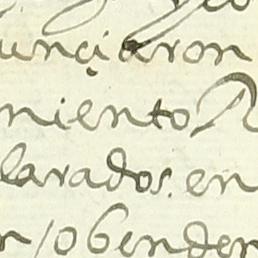 unçiaron
miento
larados. en
obender